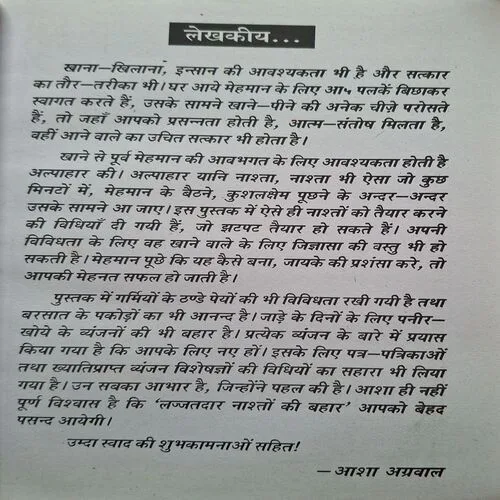 लेखकीय...
खाना–खिलाना, इन्सान की आवश्यकता भी है और सत्कार
का तौर–तरीका भी। घर आये मेहमान के लिए आप पलकें बिछाकर
स्वागत करते हैं, उसके सामने खाने–पीने की अनेक चीज़ें परोसते
हैं, तो जहाँ आपको प्रसन्नता होती है, आत्म–संतोष मिलता है,
वहीं आने वाले का उचित सत्कार भी होता है।
खाने से पूर्व मेहमान की आवभगत के लिए आवश्यकता होती है
अल्पाहार की। अल्पाहार यानि नाश्ता, नाश्ता भी ऐसा जो कुछ
मिनटों में, मेहमान के बैठने, कुशलक्षेम पूछने के अन्दर–अन्दर
उसके सामने आ जाए। इस पुस्तक में ऐसे ही नाश्तों को तैयार करने
की विधियाँ दी गयी हैं, जो झटपट तैयार हो सकते हैं। अपनी
विविधता के लिए वह खाने वाले के लिए जिज्ञासा की वस्तु भी हो
सकती है। मेहमान पूछे कि यह कैसे बना, जायके की प्रशंसा करे, तो
आपकी मेहनत सफल हो जाती है।
पुस्तक में गर्मियों के ठण्डे पेयों की भी विविधता रखी गयी है तथा
बरसात के पकोड़ों का भी आनन्द है। जाड़े के दिनों के लिए पनीर–
खोये के व्यंजनों की भी बहार है। प्रत्येक व्यंजन के बारे में प्रयास
किया गया है कि आपके लिए नए हों। इसके लिए पत्र–पत्रिकाओं
तथा ख्यातिप्राप्त व्यंजन विशेषज्ञों की विधियों का सहारा भी लिया
गया है। उन सबका आभार है, जिन्होंने पहल की है। आशा ही नहीं
पूर्ण विश्वास है कि 'लज्जतदार नाश्तों की बहार' आपको बेहद
पसन्द आयेगी।
उम्दा स्वाद की शुभकामनाओं सहित!
–आशा अग्रवाल